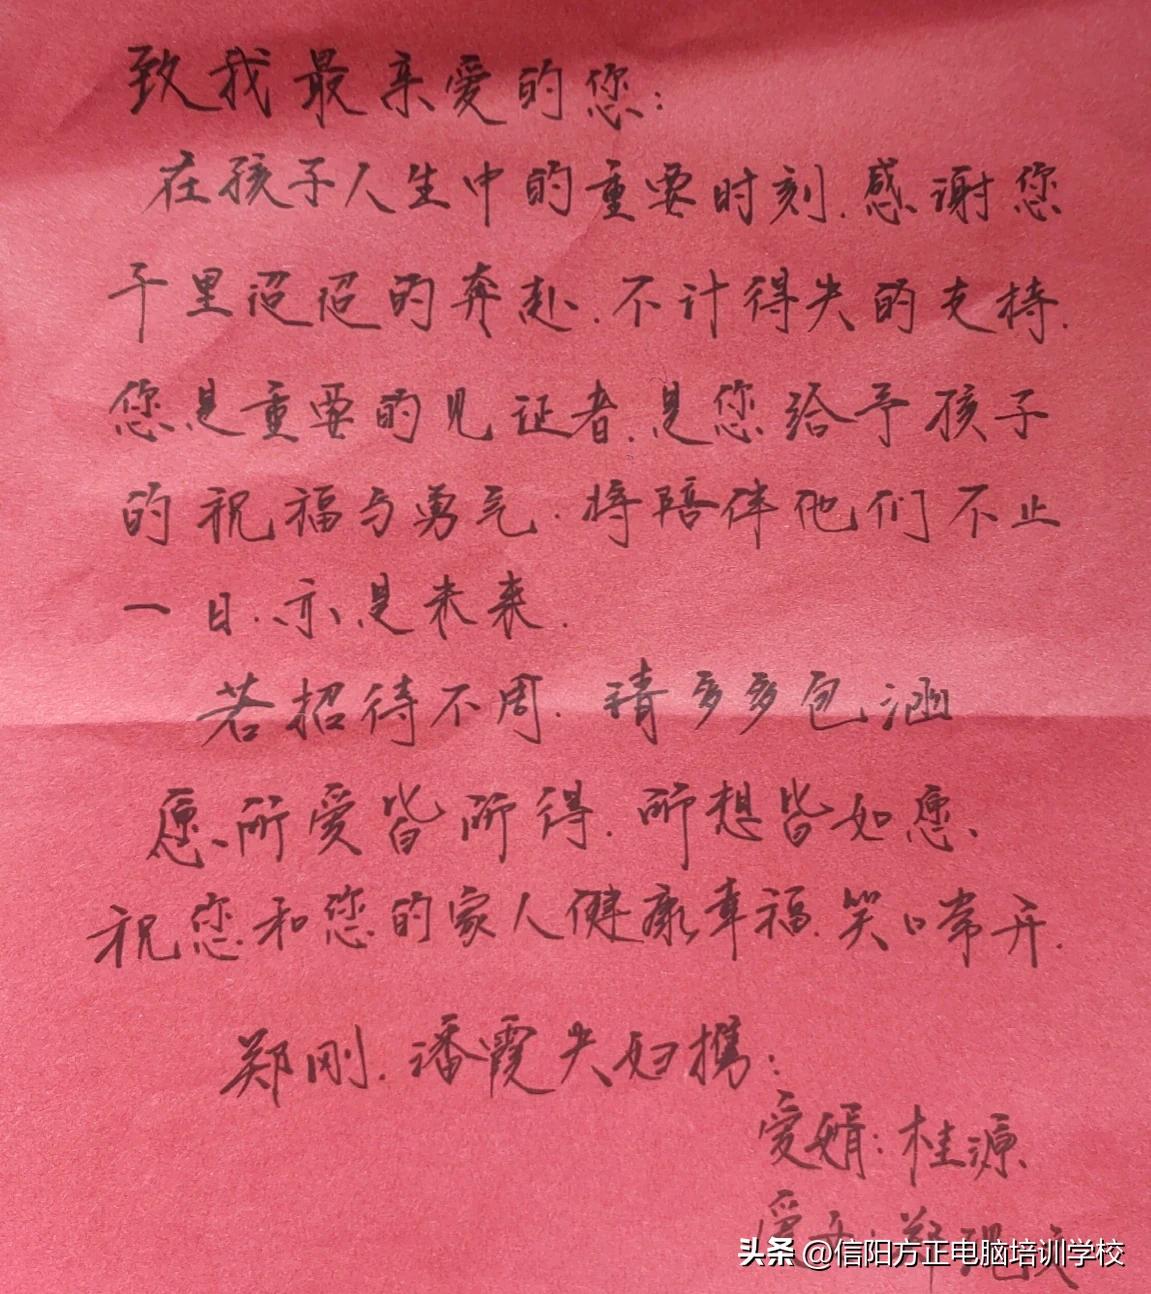 致我最亲爱的您:
在孩子人生中的重要时刻.感谢您
千里迢迢的奔赴.不计得失的支持.
您是重要的见证者.是您给予孩子
的祝福与勇气.将陪伴他们不止
一日.亦是未来.
若招待不周.请多多包涵
愿所爱皆所得.所想皆如愿.
祝您和您的家人健康幸福.笑口常开.
郑刚.潘霞夫妇携:
爱婿:桂源
头条 @信阳方正电脑培训学校